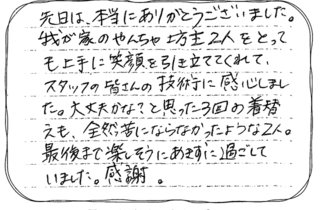 先日は、本当にありがとうございました。
我が家のやんちゃ坊主2人をとって
も上手に笑顔を引き立ててくれて、
スタッフの皆さんの技術に感心しまし
た。大丈夫かな?と思った3回の着替
えも、全然苦にならなかったような2人。
最後まで楽しそうにあきずに過ごして
いました。感謝。